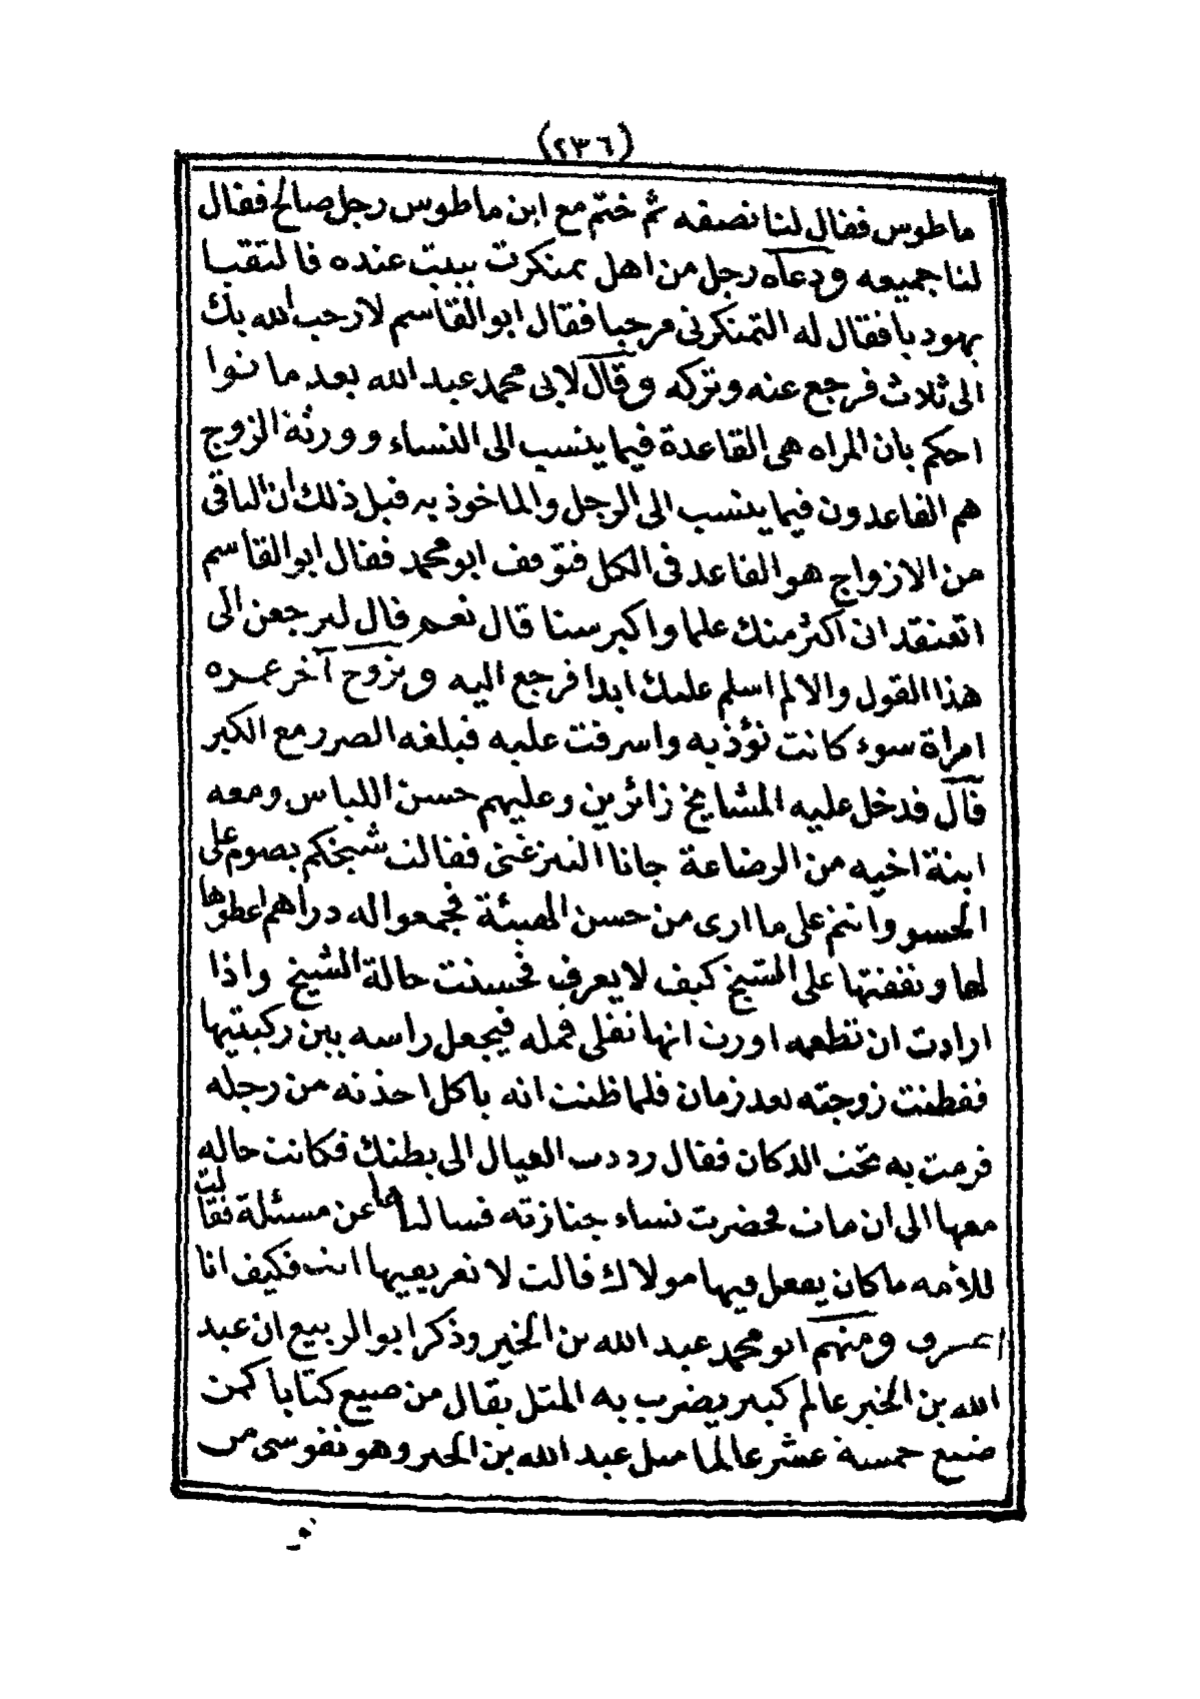 (٢٣٦)
ماطوس فقال لنا نصفه ثم ختم مع ابن ماطوس رجل صالح فقال
لنا جميعه ودعاه رجل من اهل تمنكرت يبيت عنده فالتقيا
يهوديا فقال له التمنكرتى مرحبا فقال ابو القاسم لا رحب الله بك
الى ثلاث فرجع عنه وتركه وقال لابى محمد عبد الله بعد ما توا
احكم بان المراه هى القاعدة فيما ينسب الى النساء وورثة الزوج
هم القاعدون فيما ينسب الى الرجل والماخوذ به قبل ذلك ان الباقى
من الازواج هو القاعد فى الكل فتوقف ابو محمد فقال ابو القاسم
اتعتقد ان اكثر منك علما واكبر سنا قال نعم قال لترجعن الى
هذا القول والا لم اسلم عليك ابدا فرجع اليه وتزوج آخر عمره
امراة سوء كانت تؤذيه واسرفت عليه فبلغه الضرر مع الكبر
قال فدخل عليه المشايخ زائرين وعليهم حسن اللباس ومعه
ابنة اخيه من الرضاعة جانا التنزغتى فقالت شيخكم يصوم على
الحسو وانتم على ما ارى من حسن الهيئة فجمعوا له دراهم اعطوها
لها ونفقتها على الشيخ كيف لا يعرف فحسنت حالة الشيخ واذا
ارادت ان تطعمه اورت انها تفلى قمله فيجعل راسه بين ركبتيها
ففطنت زوجته بعد زمان فلما ظنت انه ياكل اخذته من رجله
فرمت به تحت الدكان فقال رددت العيال الى بطنك فكانت حاله
معها الى ان مات فحضرت نساء جنازته فسالتها عن مسئلة فقالت
للأمه ما كان يفعل فيها مولاك قالت لا تعريفيها انت فكيف انا
اعرف ومنهم ابو محمد عبد الله بن الخير وذكر ابو الربيع ان عبد
الله بن الخير عالم كبير يضرب به المثل يقال من ضيع كتابا كمن
ضيع خمسة عشر عالما مثل عبد الله بن الخير وهو نفوسى من